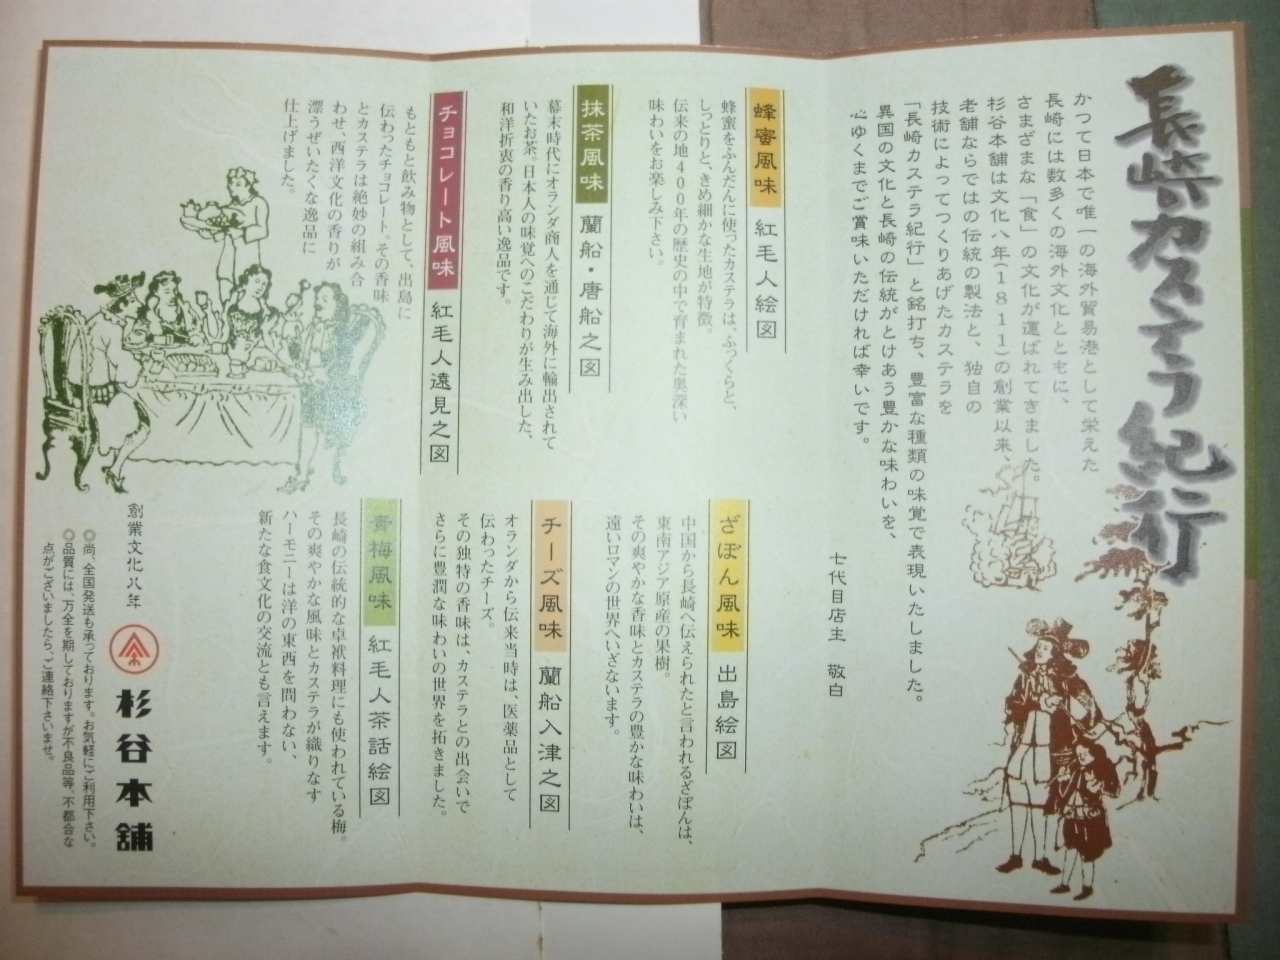 長崎カステラ紀行
かつて日本で唯一の海外貿易港として栄えた
長崎には数多くの海外文化とともに、
さまざまな「食」の文化が運ばれてきました。
杉谷本舗は文化八年(1811)の創業以来、
老舗ならではの伝統の製法と、独自の
技術によってつくりあげたカステラを
「長崎カステラ紀行」と銘打ち、豊富な種類の味覚で表現いたしました。
異国の文化と長崎の伝統がとけあう豊かな味わいを、
心ゆくまでご賞味いただければ幸いです。
七代目店主 敬白
蜂蜜風味 紅毛人絵図
蜂蜜をふんだんに使ったカステラは、ふっくらと、
しっとりと、きめ細かな生地が特徴。
伝来の地400年の歴史の中で育まれた奥深い
味わいをお楽しみ下さい。
ざぼん風味 出島絵図
中国から長崎へ伝えられたと言われるざぼんは、
東南アジア原産の果樹。
その爽やかな香味とカステラの豊かな味わいは、
遠いロマンの世界へいざないます。
抹茶風味 蘭船・唐船之図
幕末時代にオランダ商人を通じて海外に輸出されて
いたお茶。日本人の味覚へのこだわりが生み出した、
和洋折衷の香り高い逸品です。
チーズ風味 蘭船入津之図
オランダから伝来当時は、医薬品として
伝わったチーズ。
その独特の香味は、カステラとの出会いで
さらに豊潤な味わいの世界を拓きました。
チョコレート風味 紅毛人遠見之図
もともと飲み物として、出島に
伝わったチョコレート。その香味
とカステラは絶妙の組み合
わせ、西洋文化の香りが
漂うぜいたくな逸品に
仕上げました。
青梅風味 紅毛人茶話絵図
長崎の伝統的な卓袱料理にも使われている梅。
その爽やかな風味とカステラが織りなす
ハーモニーは洋の東西を問わない、
新たな食文化の交流とも言えます。
創業文化八年
杉谷本舗
◎尚、全国発送も承っております。お気軽にご利用下さい。
◎品質には、万全を期しておりますが不良品等、不都合な
点がございましたら、ご連絡下さいませ。